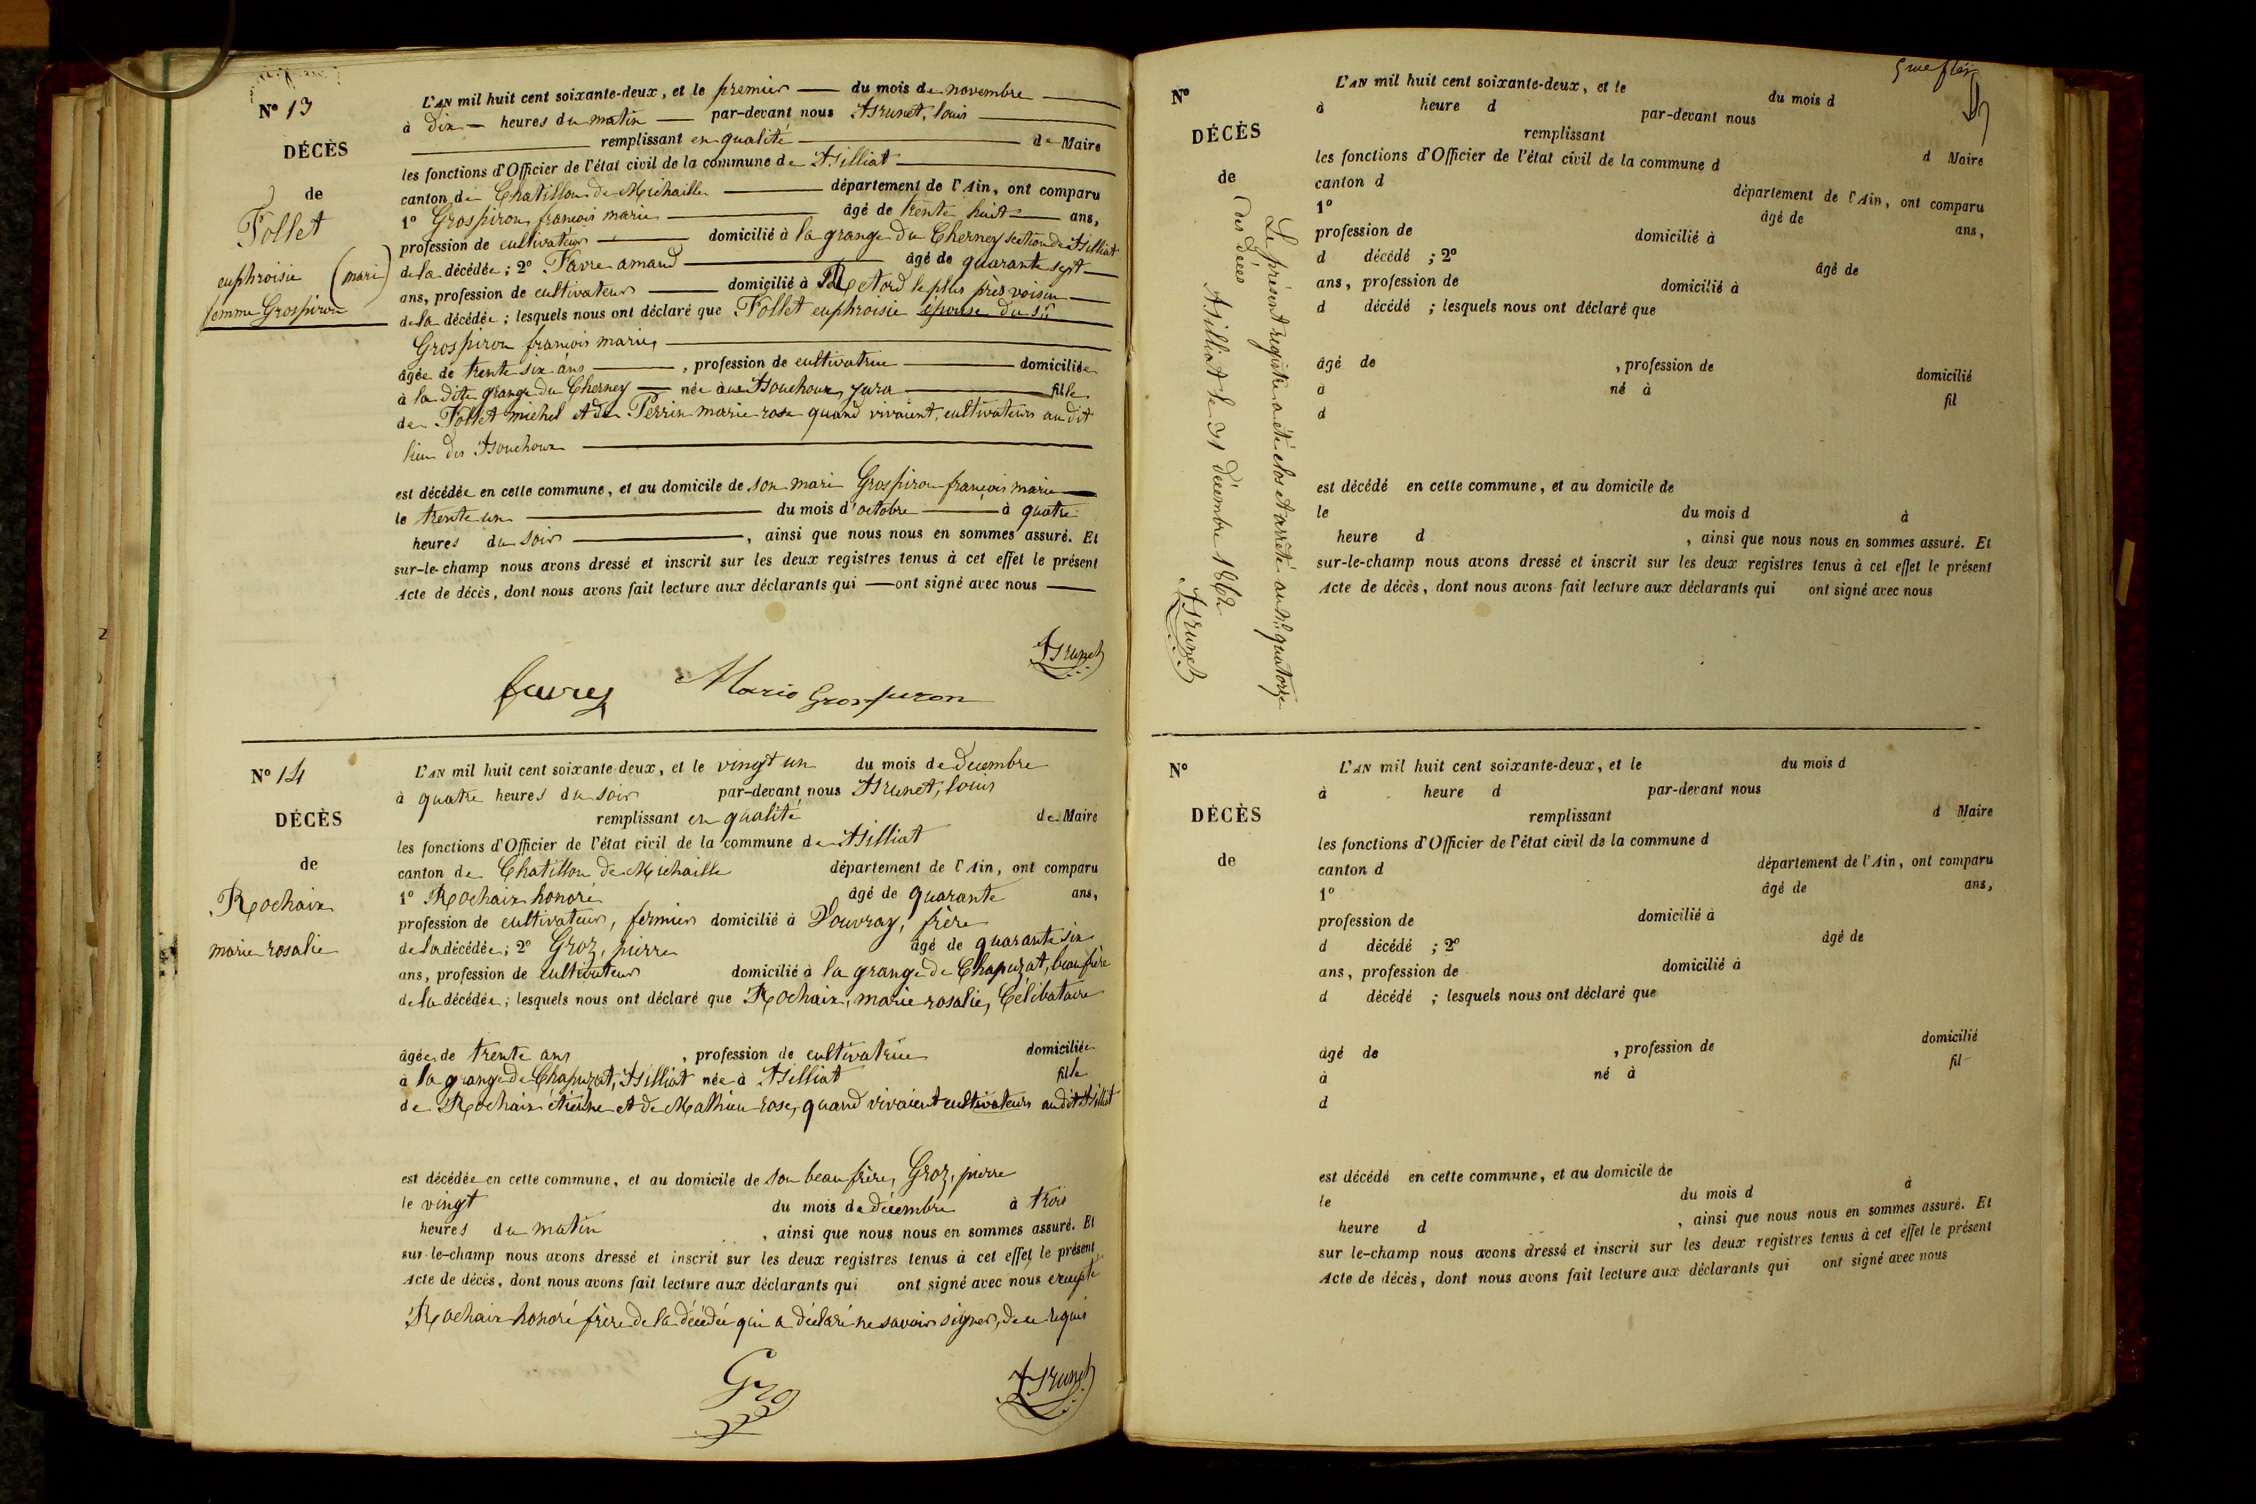 N° 13
DÉCÈS
de
Follet
euphroisie (mari)
femme Grospiron
L'AN mil huit cent soixante-deux, et le premier du mois de novembre
à dix heures du matin par-devant nous Brunet, louis
remplissant en qualité de Maire
les fonctions d'Officier de l'état civil de la commune de Billiat
canton de Chatillon de Michaille département de l'Ain, ont comparu
1° Grospiron françois marie âgé de trente huit ans,
profession de cultivateur domicilié à la grange du Cherney section de Billiat
de la décédée; 2° Favre amand âgé de quarante sept
ans, profession de cultivateur domicilié à Retord le plus près voisin
de la décédée; lesquels nous ont déclaré que Follet euphroisie épouse du sr
Grospiron françois marie,
âgée de trente six ans, profession de cultivatrice domiciliée
à la dite grange du Cherney née aux Bouchoux, jura fille
de Follet michel et de Perrin marie rose quand vivaient, cultivateurs au dit
lieu des Bouchoux
est décédée en cette commune, et au domicile de son mari Grospiron françois marie
le trente un du mois d'octobre à quatre
heures du soir, ainsi que nous nous en sommes assuré. Et
sur-le-champ nous avons dressé et inscrit sur les deux registres tenus à cet effet le présent
Acte de décès, dont nous avons fait lecture aux déclarants qui ont signé avec nous
Brunet
favre Marie Grospiron
N° 14
DÉCÈS
de
Rochaix
marie rosalie
L'AN mil huit cent soixante-deux, et le vingt un du mois de décembre
à quatre heures du soir par-devant nous Brunet, louis
remplissant en qualité de Maire
les fonctions d'Officier de l'état civil de la commune de Billiat
canton de Chatillon de Michaille département de l'Ain, ont comparu
1° Rochaix honoré âgé de quarante ans,
profession de cultivateur, fermier domicilié à Vouvray, frère
de la décédée; 2° Groz, pierre âgé de quarante six
ans, profession de cultivateur domicilié à la grange de Chapuzat, beau frère
de la décédée; lesquels nous ont déclaré que Rochaix, marie rosalie, Célibataire
âgée de trente ans, profession de cultivatrice domiciliée
à la grange de Chapuzat, Billiat née à Billiat fille
de Rochaix étienne et de Mathieu rose, quand vivaient cultivateurs audit Billiat
est décédée en cette commune, et au domicile de son beau frère, Groz, pierre
le vingt du mois de décembre à trois
heures du matin, ainsi que nous nous en sommes assuré. Et
sur-le-champ nous avons dressé et inscrit sur les deux registres tenus à cet effet le présent
Acte de décès, dont nous avons fait lecture aux déclarants qui ont signé avec nous excepté
Rochaix honoré frère de la décédée qui a déclaré ne savoir signer, de ce requis
Groz Brunet
N°
DÉCÈS
de
Le présent registre a été clos et arrêté au no quatorze
des décès
Billiat le 31 décembre 1862
Brunet
L'AN mil huit cent soixante-deux, et le du mois d
à heure d par-devant nous
remplissant d Maire
les fonctions d'Officier de l'état civil de la commune d
canton d département de l'Ain, ont comparu
1° âgé de ans,
profession de domicilié à
d décédé ; 2° âgé de
ans, profession de domicilié à
d décédé ; lesquels nous ont déclaré que
âgé de , profession de domicilié
à né à fil
d
est décédé en cette commune, et au domicile de
le du mois d à
heure d , ainsi que nous nous en sommes assuré. Et
sur-le-champ nous avons dressé et inscrit sur les deux registres tenus à cet effet le présent
Acte de décès, dont nous avons fait lecture aux déclarants qui ont signé avec nous
N°
DÉCÈS
de
L'AN mil huit cent soixante-deux, et le du mois d
à heure d par-devant nous
remplissant d Maire
les fonctions d'Officier de l'état civil de la commune d
canton d département de l'Ain, ont comparu
1° âgé de ans,
profession de domicilié à
d décédé ; 2° âgé de
ans, profession de domicilié à
d décédé ; lesquels nous ont déclaré que
âgé de , profession de domicilié
à né à fil
d
est décédé en cette commune, et au domicile de
le du mois d à
heure d , ainsi que nous nous en sommes assuré. Et
sur le-champ nous avons dressé et inscrit sur les deux registres tenus à cet effet le présent
Acte de décès, dont nous avons fait lecture aux déclarants qui ont signé avec nous